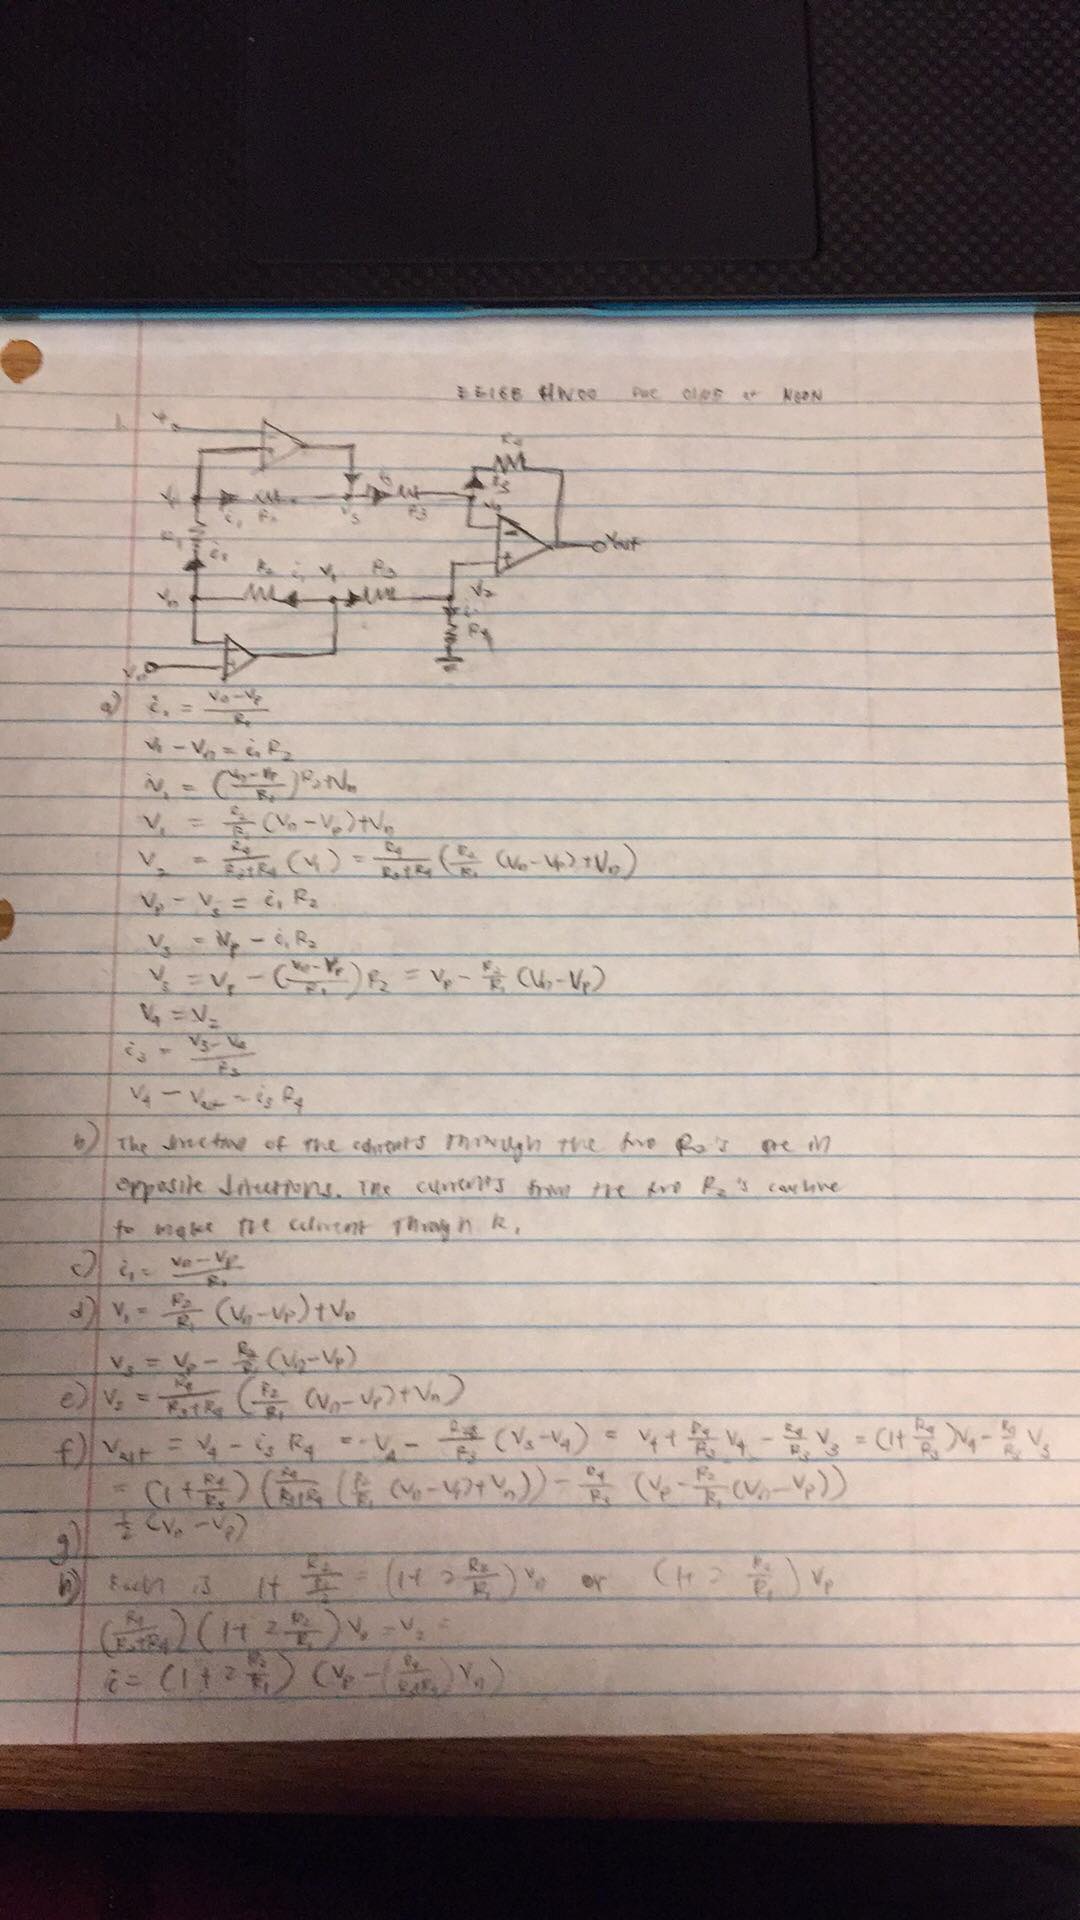 EE16B HW00 Due 01/05 at NOON
R4
R3
Vout
V2
R4
a) i₁ = (Vn-Vp)/R₁
V₁ - Vn = i₁ R₂
V₁ = ((Vn-Vp)/R₁)R₂+Vn
V₁ = R₂/R₁ (Vn-Vp)+Vn
V₂ = R₄/(R₃+R₄) (V₁) = R₄/(R₃+R₄) (R₂/R₁ (Vn-Vp)+Vn)
Vp - V₃ = i₁ R₂
V₃ = Vp - i₁R₂
V₃ = Vp - ((Vn-Vp)/R₁) R₂ = Vp - R₂/R₁ (Vn-Vp)
V₄ = V₂
i₃ = (V₃-V₄)/R₃
V₄ - Vout = i₃ R₄
b) The direction of the currents through the two R₂'s are in
opposite directions. The currents from the two R₂'s combine
to make the current through R₁
c) i₁ = (Vn-Vp)/R₁
d) V₁ = R₂/R₁ (Vn-Vp)+Vn
V₃ = Vp - R₂/R₁ (Vn-Vp)
e) V₂ = R₄/(R₃+R₄) (R₂/R₁ (Vn-Vp)+Vn)
f) Vout = V₄ - i₃ R₄ = V₄ - R₄/R₃ (V₃-V₄) = V₄ + R₄/R₃ V₄ - R₄/R₃ V₃ = (1+R₄/R₃)V₄ - R₄/R₃ V₃
= (1+R₄/R₃) (R₄/(R₃+R₄) (R₂/R₁ (Vn-Vp)+Vn)) - R₄/R₃ (Vp - R₂/R₁ (Vn-Vp))
g) ½ (Vn-Vp)
h) Each is = (1+2 R₂/R₁) Vn or (1+2 R₂/R₁) Vp
(R₄/(R₃+R₄)) (1+2 R₂/R₁) Vn = V₂ =
i = (1+2 R₂/R₁) (Vp - (R₄/(R₃+R₄)) Vn)